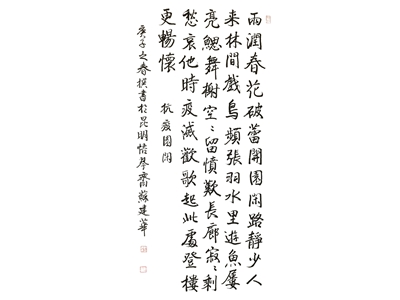 雨潤春花破蕾開園闭路靜少人
来林間戲鳥頻張羽水里遊魚屢
亮鰓舞榭空〻留憤歎長廊寂〻剩
愁哀他時疫滅歡歌起此處登樓
更暢懷
抗疫園闭
庚子之春撰書於昆明齋蘇建華